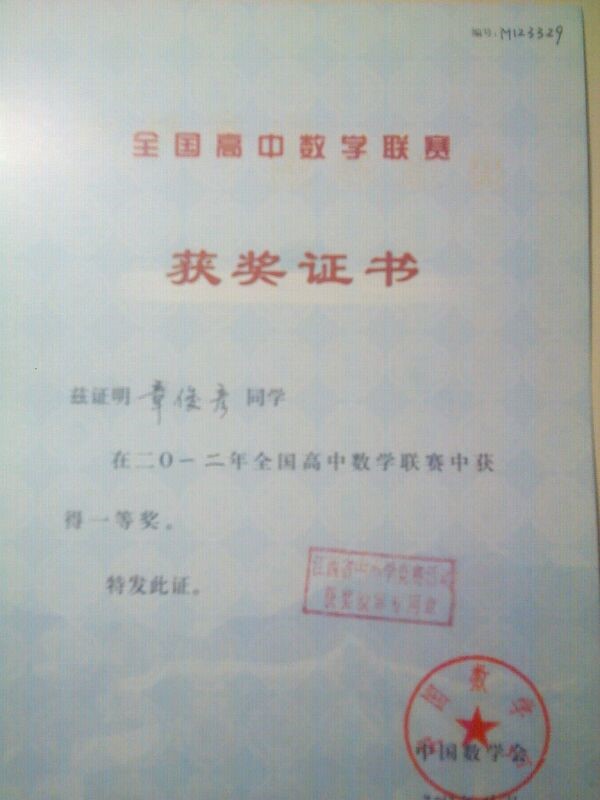 编号:M123329
全国高中数学联赛
获奖证书
兹证明 章俊彦 同学
在二〇一二年全国高中数学联赛中获
得一等奖。
特发此证。
江西省中小学竞赛活动
获奖证书专用章
中国数学会